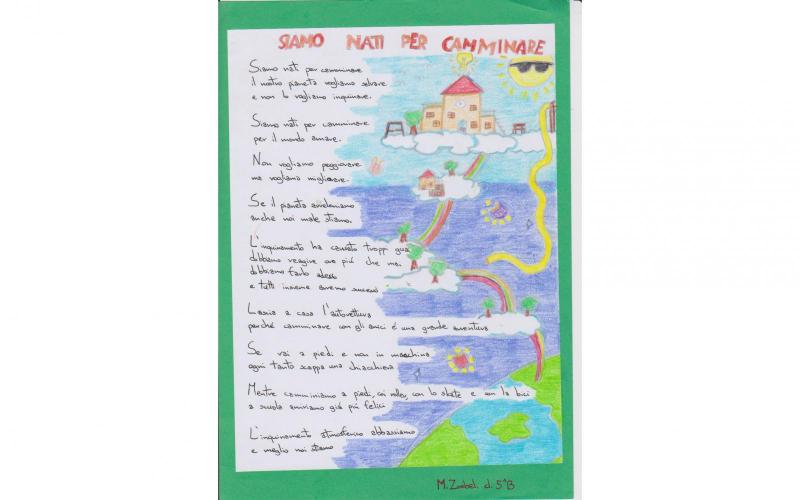 SIAMO NATI PER CAMMINARE
Siamo nati per camminare
il nostro pianeta vogliamo salvare
e non lo vogliamo inquinare.
Siamo nati per camminare
per il mondo amare.
Non vogliamo peggiorare
ma vogliamo migliorare.
Se il pianeta avveleniamo
anche noi male stiamo.
L'inquinamento ha causato troppi guai
dobbiamo reagire ora più che mai
dobbiamo farlo adesso
e tutti insieme avremo successo
Lascia a casa l'autovettura
perché camminare con gli amici é una grande avventura
Se vai a piedi e non in macchina
ogni tanto scappa una chiacchiera
Mentre camminiamo a piedi, coi roller, con lo skate e con la bici
a scuola arriviamo già più felici
L'inquinamento atmosferico abbassiamo
e meglio noi stiamo
M. cl. 5^B